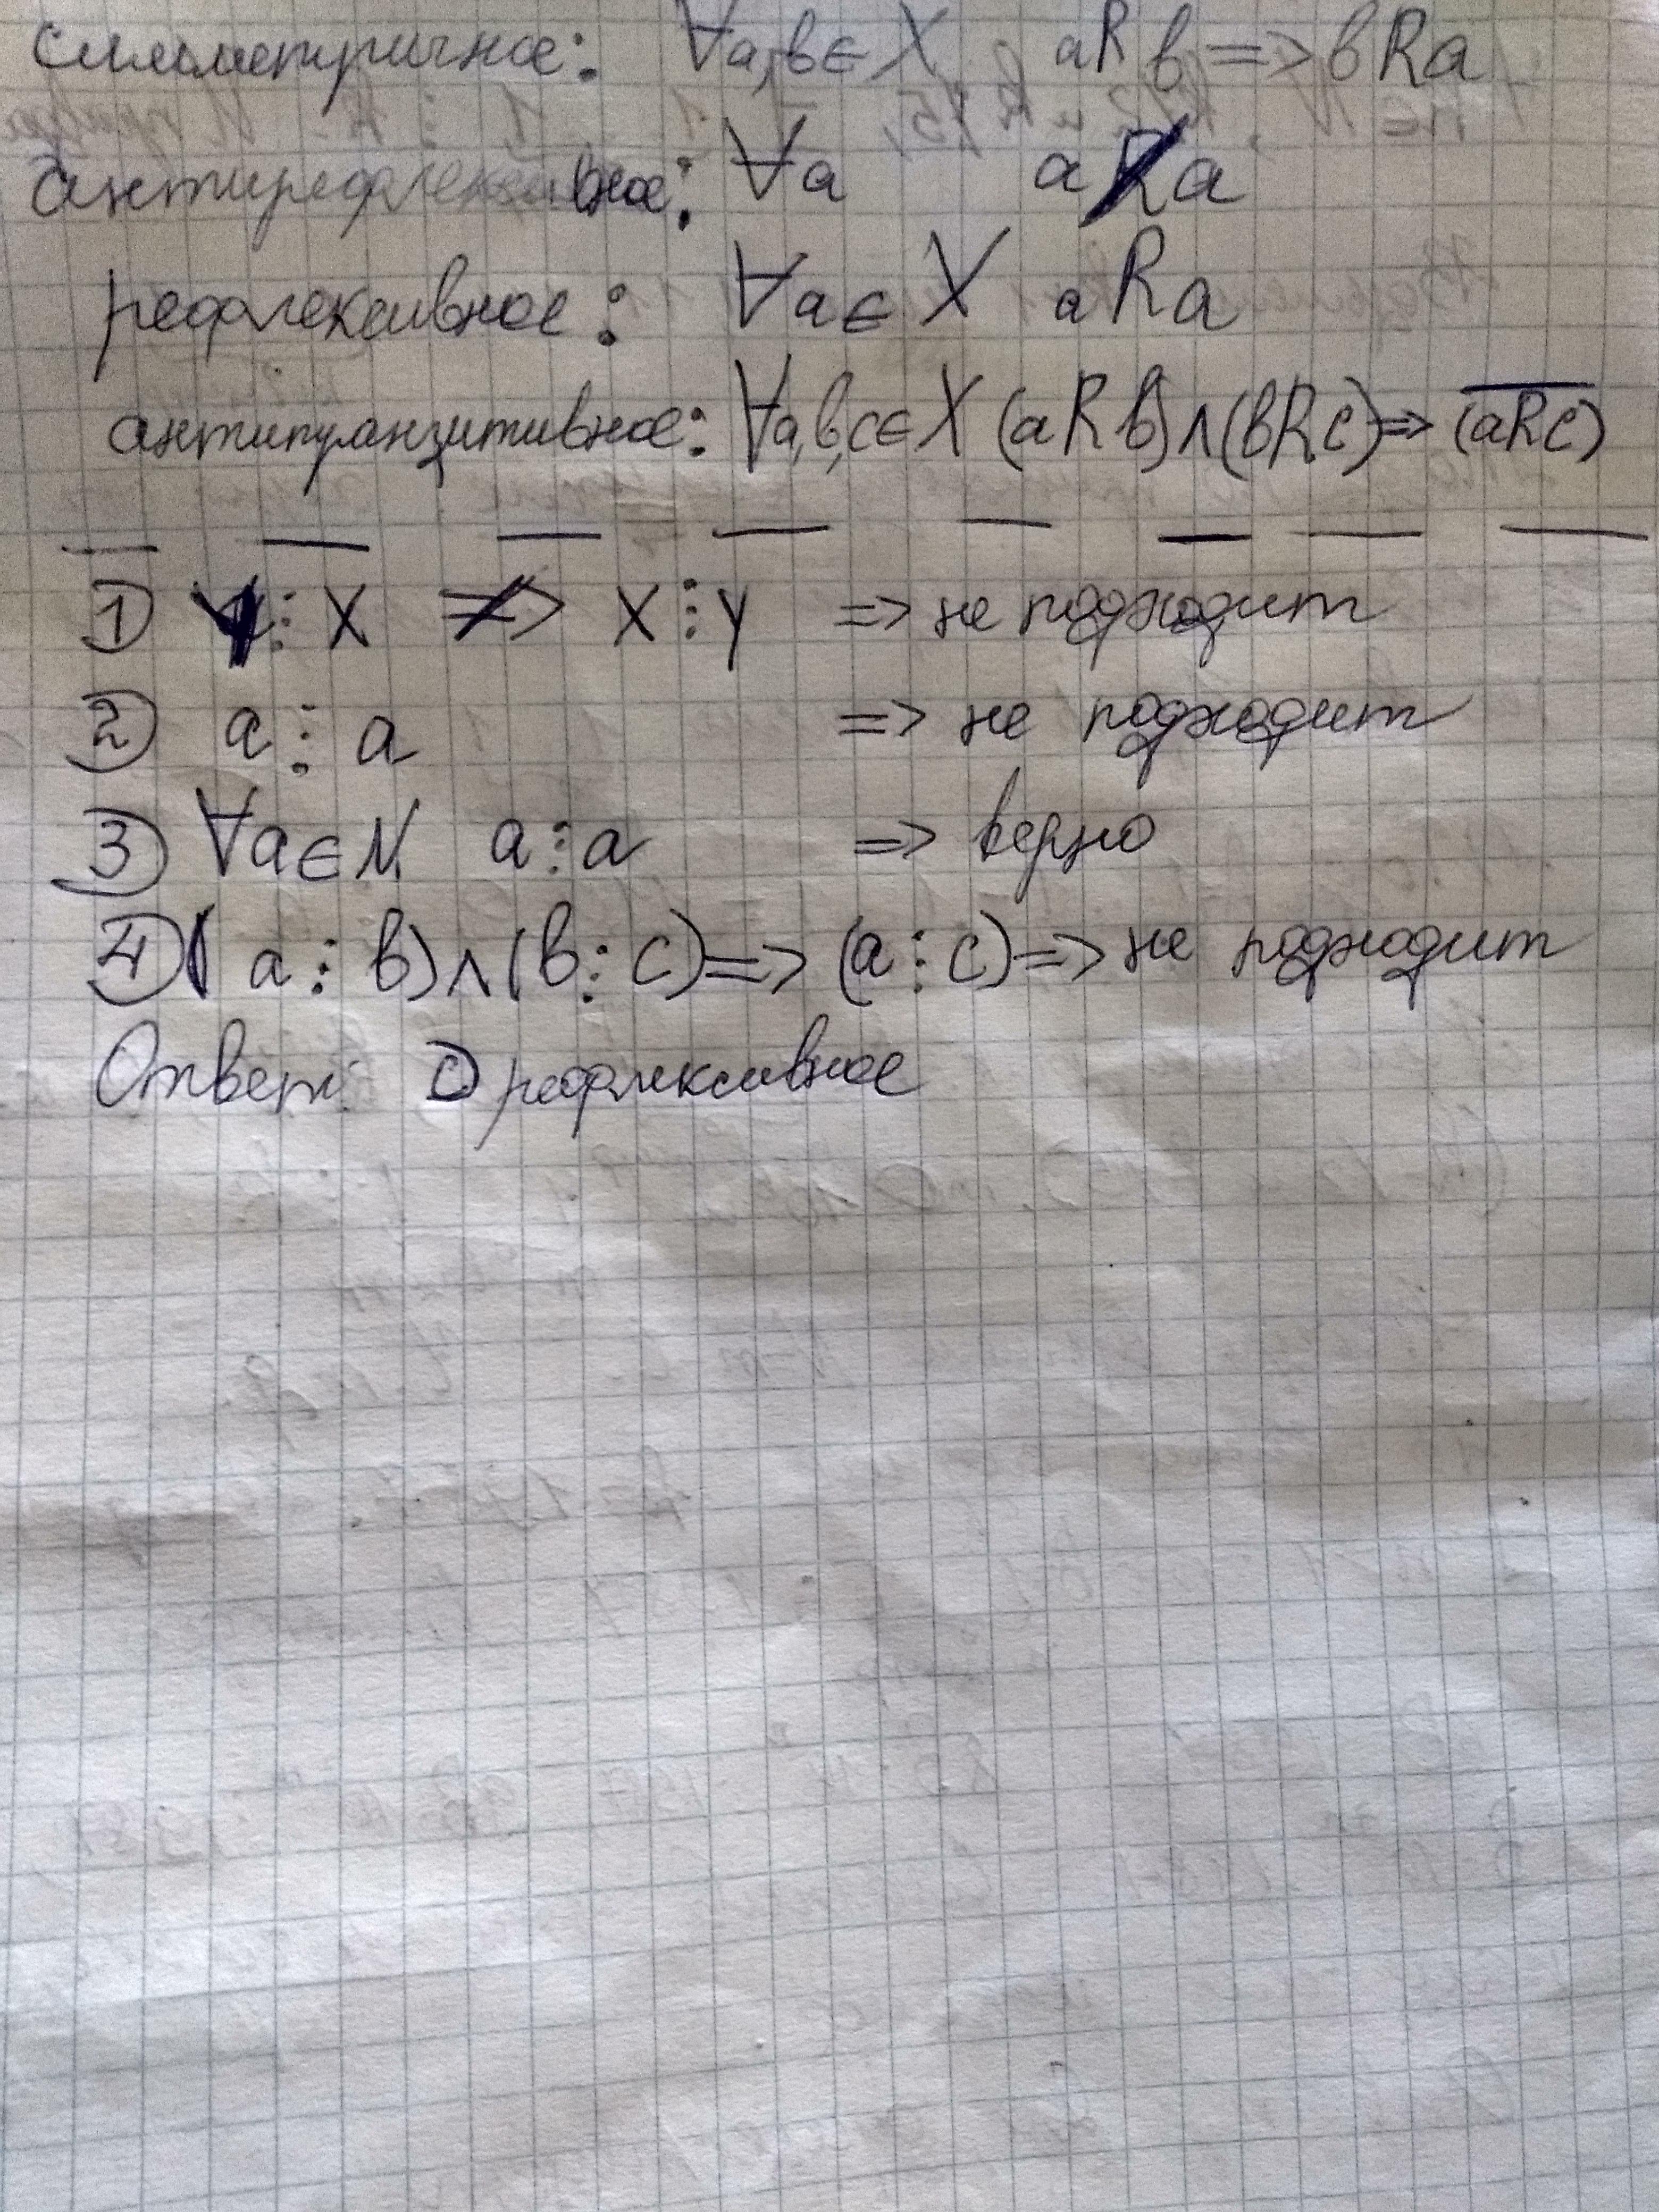 симметричное: ∀a,b∈X aRb => bRa
антирефлексивное: ∀a aR̸a
рефлексивное: ∀a∈X aRa
антитранзитивное: ∀a,b,c∈X (aRb)∧(bRc)=> (\overline{aRc})
① Y⋮X ≠> X⋮Y => не подходит
② a⋮a => не подходит
③ ∀a∈N a⋮a => верно
④ (a⋮b)∧(b⋮c)=>(a⋮c)=> не подходит
Ответ: C) рефлексивное